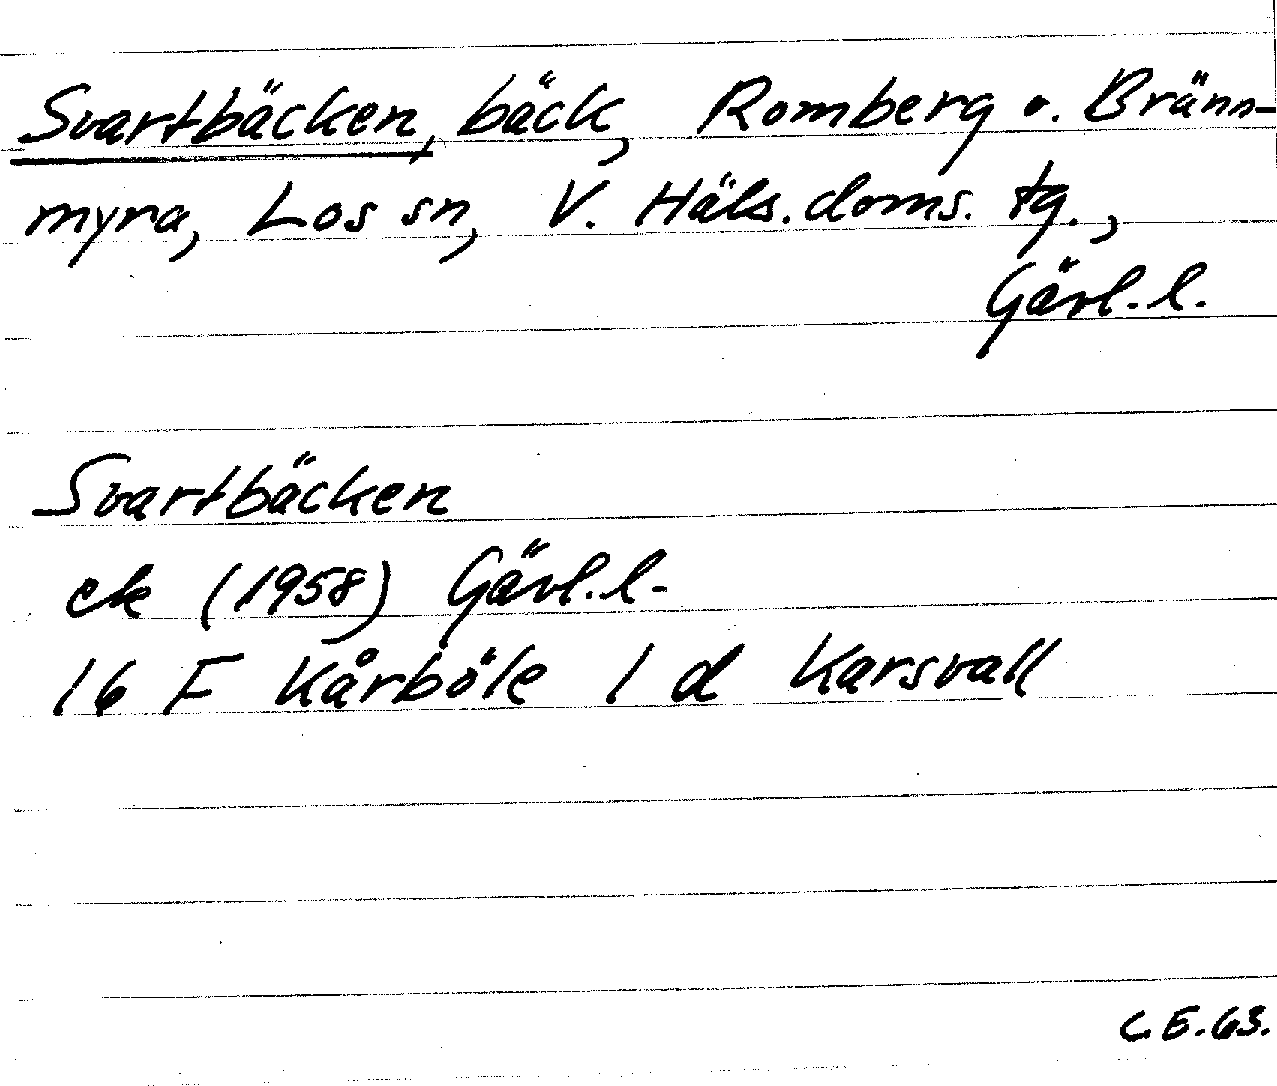 Svartbäcken, bäck, Romberg o. Bränn-
myra, Los sn, V. Häls. doms. tg.,
Gävl. l.
Svartbäcken
ek (1958) Gävl. l.
16 F Kårböle 1 d Karsvall
C. E. 63.